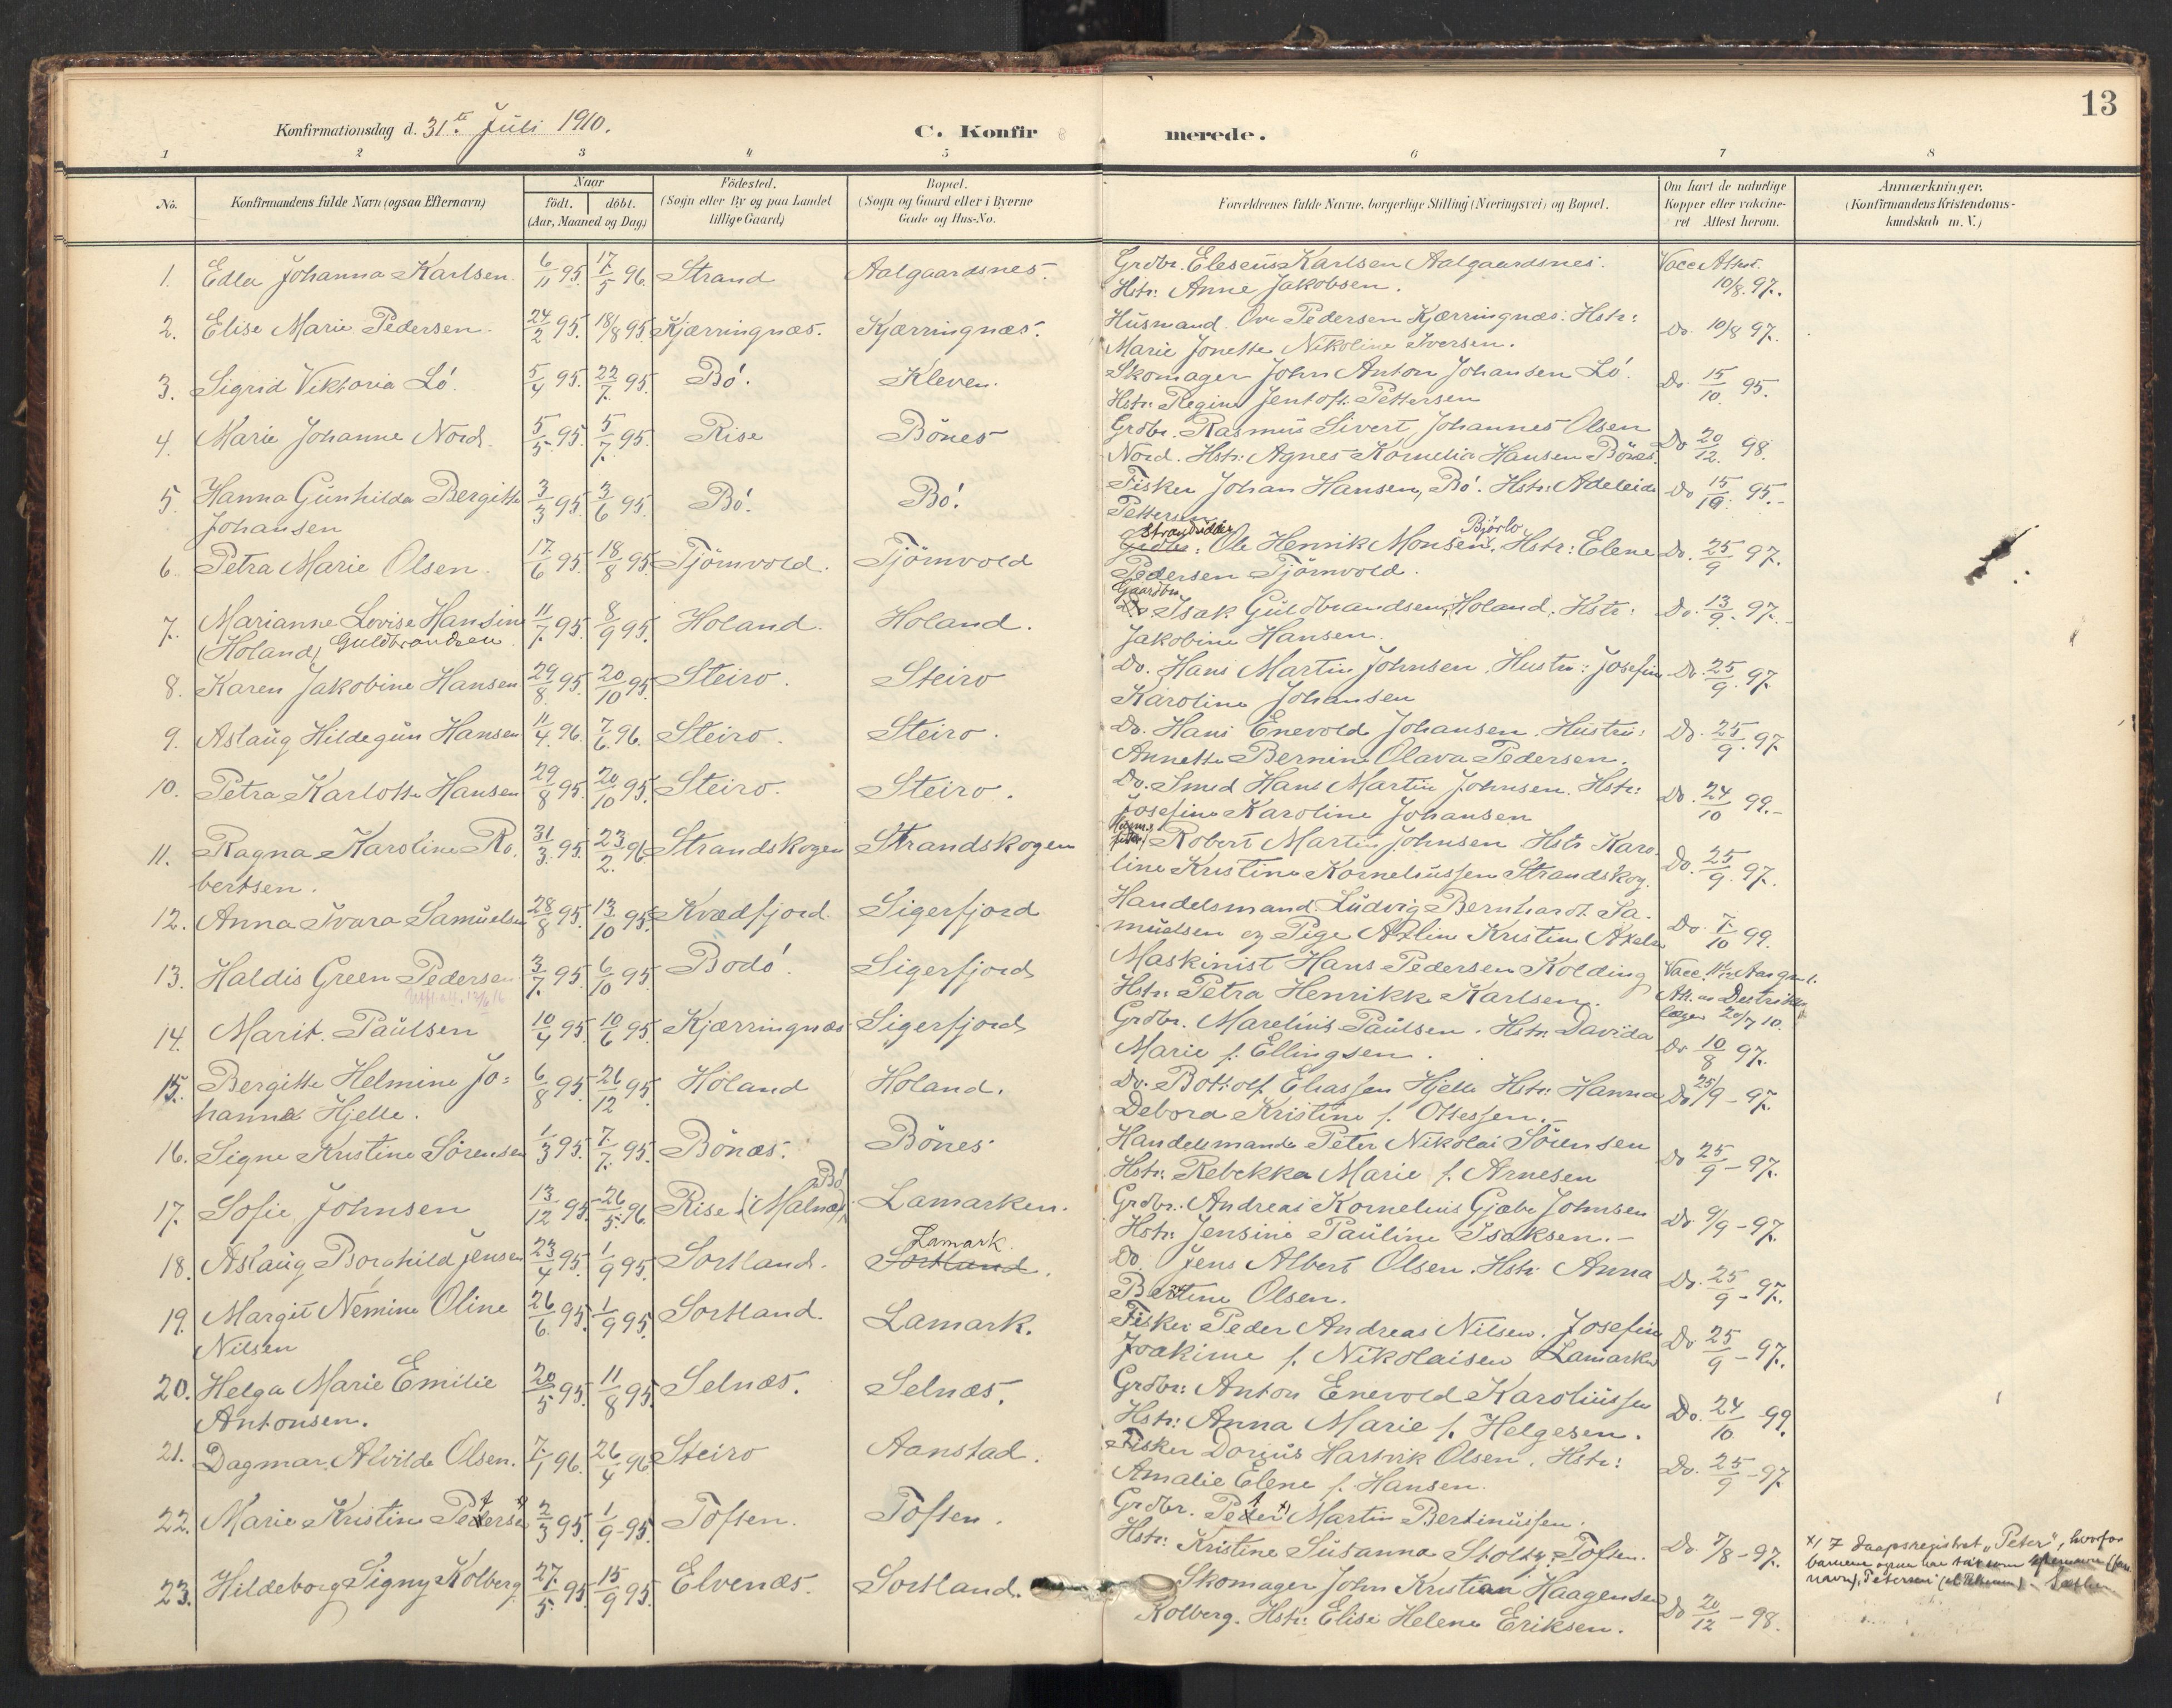 13
Konfirmationsdag d. 31te Juli 1910.
C. Konfirmerede.
1 2 3 4 5 6 7 8
No.
Konfirmandens fulde Navn (ogsaa Efternavn)
Naar
født. døbt.
(Aar, Maaned og Dag)
Födested.
(Sogn eller By og paa Landet
tillige Gaard)
Bopæl.
(Sogn og Gaard eller i Byerne
Gade og Hus-No.
Forældrenes fulde Navne, borgerlige Stilling (Næringsvei) og Bopæl.
Om havt de naturlige
Kopper eller vakcine-
ret Attest herom.
Anmærkninger.
(Konfirmandens Kristendoms-
kundskab m. V.)
1. Edla Johanna Karlsen. 6/11 95. 17/5 96. Strand Aalgaardsnes. Grdbr. Eleseus Karlsen Aalgaardsnes. Vacc Attest.
Hstr. Anne Jakobsen. 10/8. 97.
2. Elise Marie Pedersen. 24/2 95. 18/8 95. Kjærringnæs. Kjærringnæs. Husmand. Ove Pedersen Kjærringnæs. Hstr: Do. 10/8 97.
Marie Jonette Nikoline Iversen.
3. Sigrid Viktoria Ló. 5/4 95. 22/7. 95. Bó. Kleven. Skomager John Anton Johansen Ló. Do. 15/10. 95.
Hstr. Regine Jentoft Pettersen
4. Marie Johanne Nord. 5/5. 95. 5/7. 95. Rise Bönes Grdbr. Rasmus Sivert Johannes Olsen Do 20/12. 98.
Nord. Hstr: Agnes Kornelia Hansen Bönes.
5. Hanna Gunhilda Bergitte 3/3 95. 3/6 95. Bó. Bó. Fisker Johan Hansen, Bó. Hstr: Adeleide Do 15/10. 95.
Johansen Pettersen
6. Petra Marie Olsen. 17/6 95. 18/8 95. Tjömvold. Tjömvold Strandsidder Grdbr: Ole Henrik Monsen Björlo. Hstr: Elene Do. 25/9 97.
Pedersen Tjömvold.
7. Marianne Lovise Hansine 11/7. 95. 8/9 95. Holand. Holand. Gaardbr. Isak Guldbrandsen, Holand. Hstr: Do. 13/9. 97.
(Holand) Guldbrandsen Jakobine Hansen.
8. Karen Jakobine Hansen 29/8. 95. 20/10 95. Steiro. Steiro Do. Hans Martin Johnsen. Hustru: Josefine Do. 25/9. 97.
Karoline Johansen
9. Aslaug Hildegun Hansen 11/4. 96. 7/6. 96. Steiro. Steiro. Do. Hans Enevold Johansen. Hustru: Do. 25/9. 97.
Annette Bernine Olava Pedersen.
10. Petra Karlotte Hansen 29/8 95. 20/10 95. Steiro. Steiro. Do. Smed Hans Martin Johnsen. Hstr: Do. 24/10 99.
Josefine Karoline Johansen
11. Ragna Karoline Ro- 31/3. 95. 23/2. 96. Strandskogen Strandskogen Robert Martin Johnsen Hstr Karo- Do. 25/9. 97.
bertsen. line Kristine Korneliussen Strandskog.
12. Anna Ivara Samuelsen 28/8 95. 13/10 95. Kvædfjord. Sigerfjord Handelsmand Ludvig Bernhardt Sa- Do. 7/10 99.
muelsen og Pige Axline Kristine Axels
13. Haldis Green Pedersen 3/7. 95. 6/10 95. Bodó. Sigerfjord Maskinist Hans Pedersen Kolding Vacc.
Hstr. Petra Henrikke Karlsen. Att. av Destrikts
læger 20/7 10.
14. Marit. Paulsen 10/4 95. 10/6 95. Kjærringnæs Sigerfjord Grdbr. Marelius Paulsen. Hstr. Davida Do 10/8 97.
Marie f. Ellingsen.
15. Bergitte Helmine Jo= 6/8 95. 26/12 95. Holand Holand. Do. Bottolf Eliassen Hjelle Hstr: Hanna Do 25/9 - 97.
hanna Hjelle. Debora Kristine f. Ottessen.
16. Signe Kristine Sörensen 1/3 95. 7/7. 95. Bönæs. Bönes Handelsmand Peter Nikolai Sörensen Do 25/9 - 97.
Hstr. Rebekka Marie f. Arnesen
17. Sofie Johnsen 13/12 95. 26/5. 96. Rise (Malnæs) Bó Lamarken. Grdbr. Andreas Kornelius Gjæbe Johnsen Do 9/9 - 97.
Hstr. Jensine Pauline Isaksen.
18. Aslaug Borghild Jensen 23/4 95. 1/9 95. Sortland. Lamark Sortland. Do. Jens Albert Olsen. Hstr Anna Do. 25/9 - 97.
Bertine Olsen.
19. Margit Nemine Oline 26/6. 95. 1/9 95. Sortland. Lamark. Fisker Peder Andreas Nilsen. Josefine Do 25/9 - 97.
Nilsen Joakime f. Nikolaisen Lamarken
20. Helga Marie Emilie 20/5 95. 11/8 95. Selnæs. Selnæs. Grdbr: Anton Enevold Karoliussen Do. 24/10 99.
Antonsen. Hstr: Anna Marie f. Helgesen.
21. Dagmar Alvilde Olsen. 7/1 96. 26/4 96. Steiro Aanstad. Fisker Dorius Hartvik Olsen. Hstr: Do. 25/9 - 97.
Amalie Elene f. Hansen.
22. Marie Kristine Petersen 2/3 95. 1/9 95. Toften. Toften. Grdbr. Peter x) Martin Bertinussen. Do. 7/8 - 97.
Hstr: Kristine Susanna Stoltz. Toften.
x) I daapsregistret "Peter", hvorfor
navn), Petersen
23. Hildeborg Signy Kolberg. 27/5. 95. 15/9 95. Elvenæs. Sortland. Skomager John Kristian Haagensen Do 20/12 - 98.
Kolberg. Hstr: Elise Helene Eriksen.